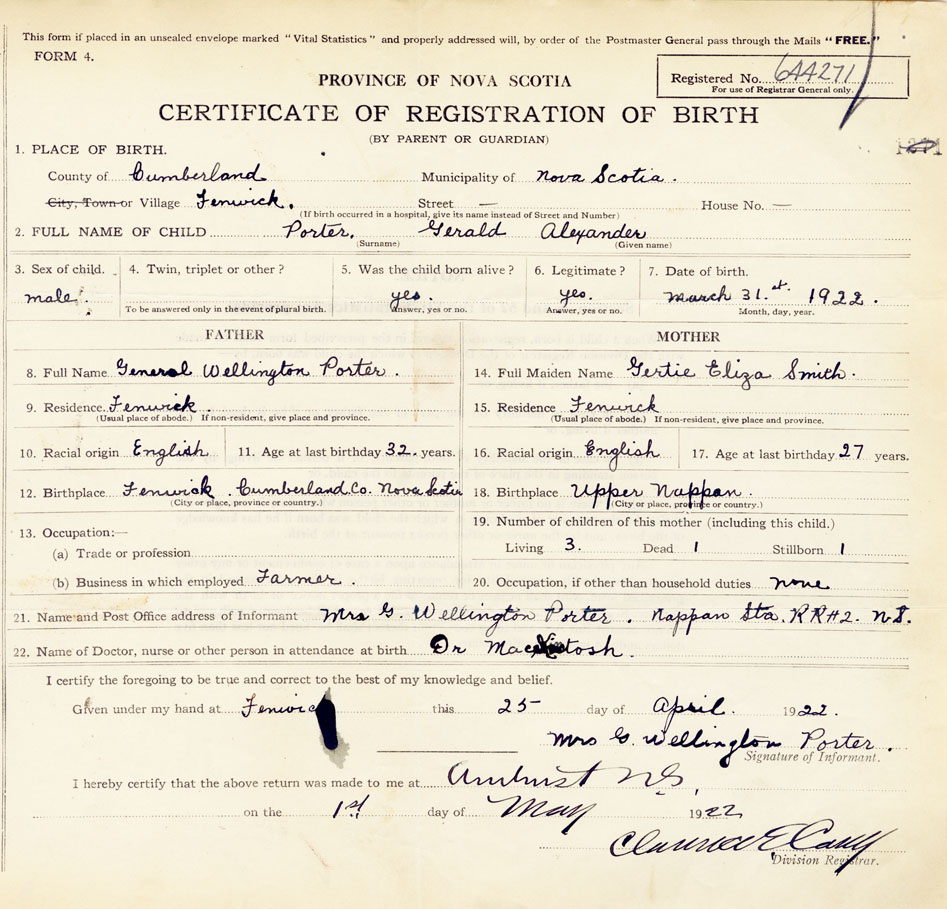 This form if placed in an unsealed envelope marked "Vital Statistics" and properly addressed will, by order of the Postmaster General pass through the Mails "FREE."
FORM 4.
Registered No. 644271
For use of Registrar General only.
PROVINCE OF NOVA SCOTIA
CERTIFICATE OF REGISTRATION OF BIRTH
(BY PARENT OR GUARDIAN)
1. PLACE OF BIRTH.
County of Cumberland Municipality of Nova Scotia.
City, Town or Village Fenwick. Street — House No. —
(If birth occurred in a hospital, give its name instead of Street and Number)
2. FULL NAME OF CHILD Porter, Gerald Alexander
(Surname) (Given name)
3. Sex of child. 4. Twin, triplet or other? 5. Was the child born alive? 6. Legitimate? 7. Date of birth.
male. yes. yes. March 31.st 1922.
To be answered only in the event of plural birth. Answer, yes or no. Answer, yes or no. Month, day, year.
FATHER MOTHER
8. Full Name General Wellington Porter. 14. Full Maiden Name Gertie Eliza Smith.
9. Residence. Fenwick. 15. Residence Fenwick
(Usual place of abode.) If non-resident, give place and province. (Usual place of abode.) If non-resident, give place and province.
10. Racial origin English 11. Age at last birthday 32. years. 16. Racial origin English 17. Age at last birthday 27 years.
12. Birthplace Fenwick. Cumberland Co. Nova Scotia 18. Birthplace Upper Nappan.
(City or place, province or country.) (City or place, province or country.)
13. Occupation:— 19. Number of children of this mother (including this child.)
(a) Trade or profession Living 3. Dead 1 Stillborn 1
(b) Business in which employed Farmer. 20. Occupation, if other than household duties none
21. Name and Post Office address of Informant Mrs G. Wellington Porter. Nappan Sta. RR#2. N.S.
22. Name of Doctor, nurse or other person in attendance at birth Dr Macintosh.
I certify the foregoing to be true and correct to the best of my knowledge and belief.
Given under my hand at Fenwick this 25 day of April. 1922.
Mrs G. Wellington Porter.
Signature of Informant.
I hereby certify that the above return was made to me at Amherst N.S.
on the 1st day of May 1922
Clarence E
Division Registrar.